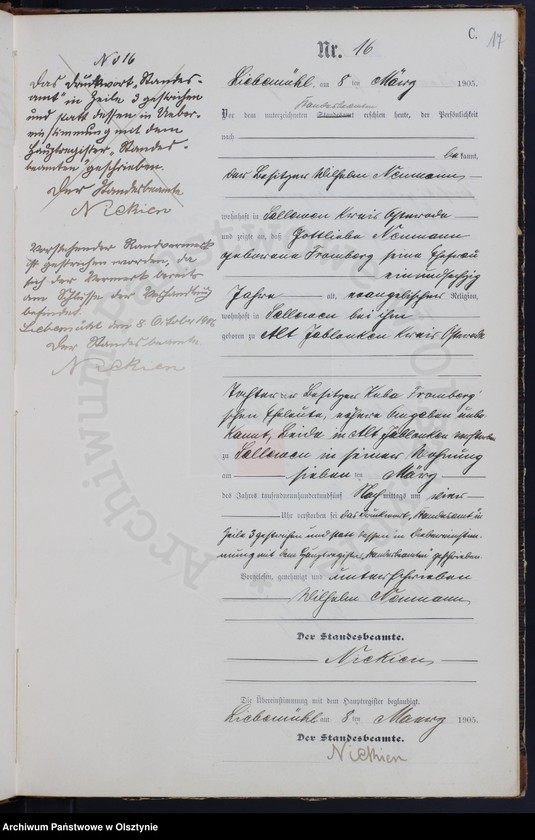 C.
17
Nr. 16
No 16
Das Druckwort „Standes-
amt" in Zeile 3 gestrichen
und statt dessen in Ueber-
einstimmung mit dem
Hauptregister „Standes-
beamten" geschrieben.
Der Standesbeamte
Nickien
Vorstehender Randvermerk
ist gestrichen worden, da
sich der Vermerk bereits
am Schlusse der Verhandlung
befindet.
Liebemühl den 8 October
Der Standesbeamte
Nickien
Liebemühl am 8 ten März 1905.
Standesbeamten
Vor dem unterzeichneten Standesamt erschien heute, der Persönlichkeit
nach
be kannt,
der Besitzer Wilhelm Neumann
wohnhaft in Sallewen Kreis Osterode
und zeigte an, daß Gottliebe Neumann
geborene Fromberg seine Ehefrau
einundsechzig
Jahre alt, evangelischer Religion,
wohnhaft in Sallewen bei ihm
geboren zu Alt Jablonken Kreis Osterode
Tochter der Besitzer Kuba Fromberg'
schen Eheleute, nähere Angaben unbe
kannt, beide in Alt Jablonken verstorben
zu Sallewen in seiner Wohnung
am sieben ten März
des Jahres tausendneunhundertundfünf Nachmittags um vier
Uhr verstorben sei Das Druckwort „Standesamt" in
Zeile 3 gestrichen und statt dessen in Uebereinstim-
mung mit dem Hauptregister „Standesbeamten" geschrieben
Vorgelesen, genehmigt und unterschrieben
Wilhelm Neumann
Der Standesbeamte.
Nickien
Die Übereinstimmung mit dem Hauptregister beglaubigt.
Liebemühl am 8 ten Maerz 1905.
Der Standesbeamte.
Nickien
Archiwum Państwowe w Olsztynie
Archiwum Państwowe w Olsztynie